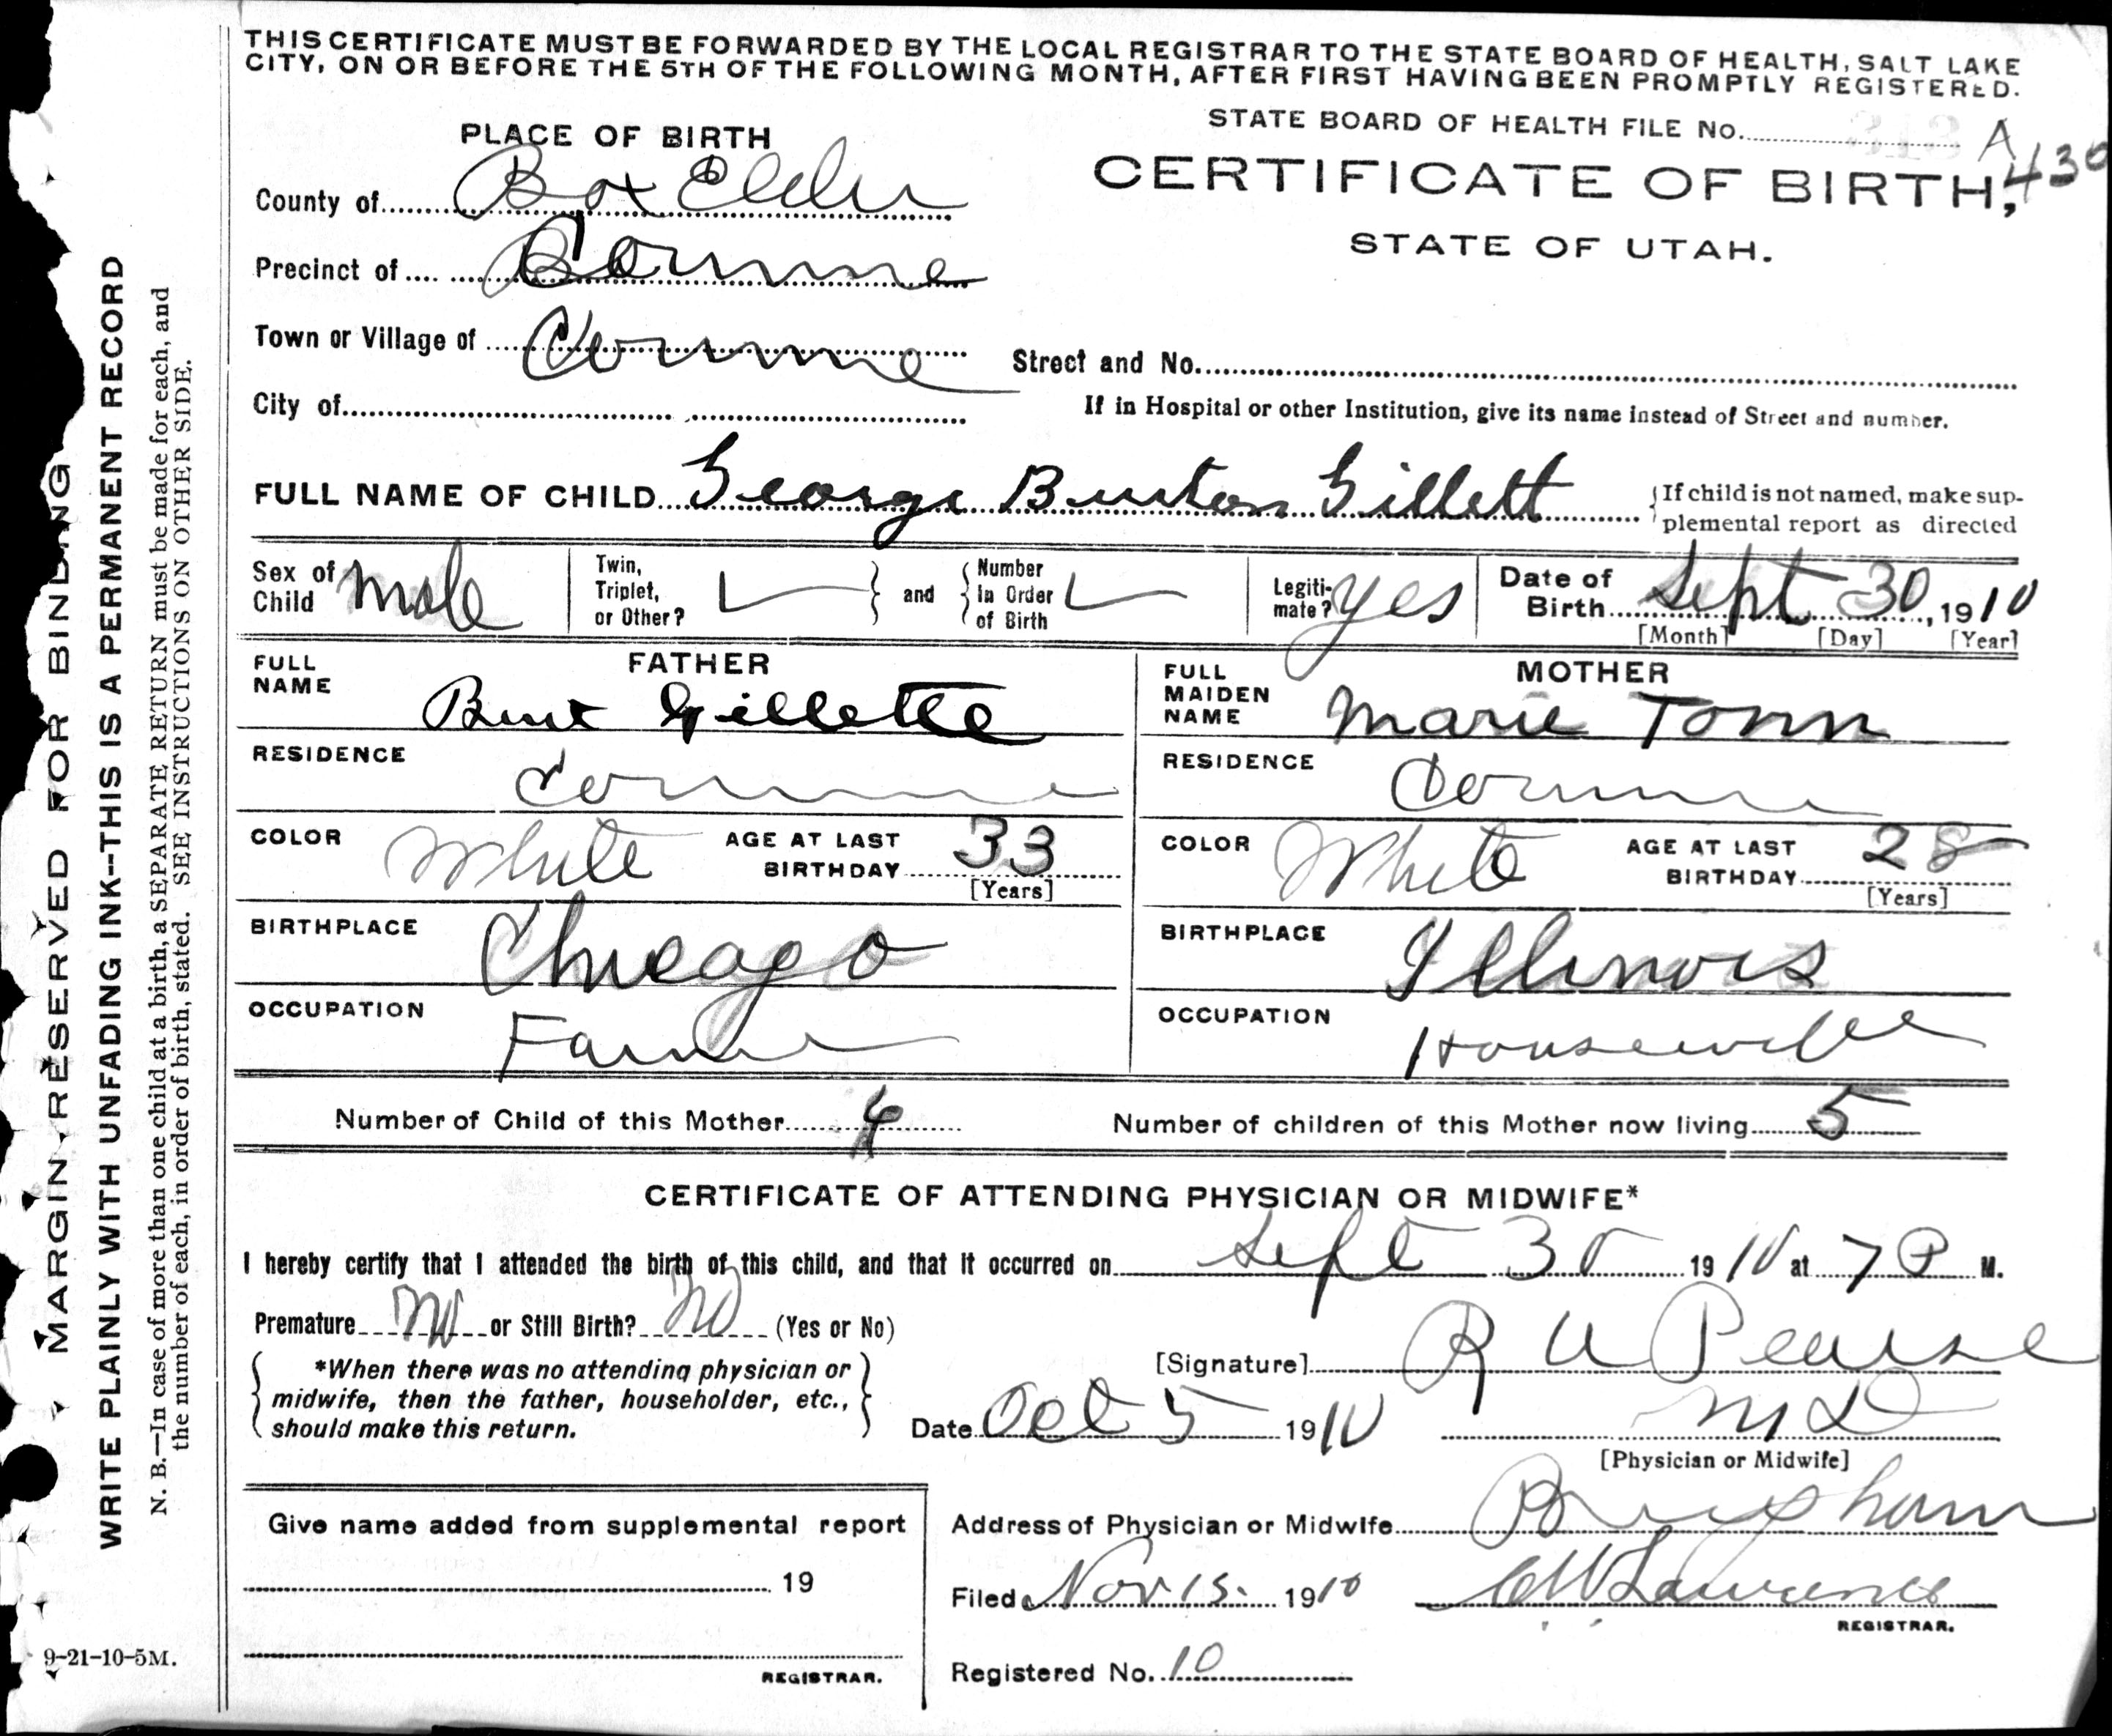 THIS CERTIFICATE MUST BE FORWARDED BY THE LOCAL REGISTRAR TO THE STATE BOARD OF HEALTH, SALT LAKE
CITY, ON OR BEFORE THE 5TH OF THE FOLLOWING MONTH, AFTER FIRST HAVING BEEN PROMPTLY REGISTERED.
STATE BOARD OF HEALTH FILE No. A 430
PLACE OF BIRTH
CERTIFICATE OF BIRTH,
STATE OF UTAH.
County of Box Elder
Precinct of Corinne
Town or Village of Corinne
Street and No.
City of
If in Hospital or other Institution, give its name instead of Street and number.
FULL NAME OF CHILD George Burton Gillett
{If child is not named, make sup-
plemental report as directed
Sex of Child Male
Twin, Triplet, or Other?
and
Number in Order of Birth
Legiti-mate? Yes
Date of Birth Sept 30, 1910
[Month] [Day] [Year]
FATHER
FULL NAME Burt Gillette
RESIDENCE Corinne
COLOR White
AGE AT LAST BIRTHDAY 33
[Years]
BIRTHPLACE Chicago
OCCUPATION Farmer
MOTHER
FULL MAIDEN NAME Marie Tonn
RESIDENCE Corinne
COLOR White
AGE AT LAST BIRTHDAY 28
[Years]
BIRTHPLACE Illinois
OCCUPATION Housewife
Number of Child of this Mother 4
Number of children of this Mother now living 5
CERTIFICATE OF ATTENDING PHYSICIAN OR MIDWIFE*
I hereby certify that I attended the birth of this child, and that it occurred on Sept 30 1910 at 7 P M.
Premature No or Still Birth? No (Yes or No)
*When there was no attending physician or
midwife, then the father, householder, etc.,
should make this return.
[Signature] R A Pearse
Date Oct 5 1910
M D
[Physician or Midwife]
Give name added from supplemental report
19
REGISTRAR.
Address of Physician or Midwife Brigham
Filed Nov 15. 1910
C W Lawrence
REGISTRAR.
Registered No. 10
MARGIN RESERVED FOR BINDING
WRITE PLAINLY WITH UNFADING INK--THIS IS A PERMANENT RECORD
N. B.—In case of more than one child at a birth, a SEPARATE RETURN must be made for each, and
the number of each, in order of birth, stated. SEE INSTRUCTIONS ON OTHER SIDE.
9-21-10-5M.